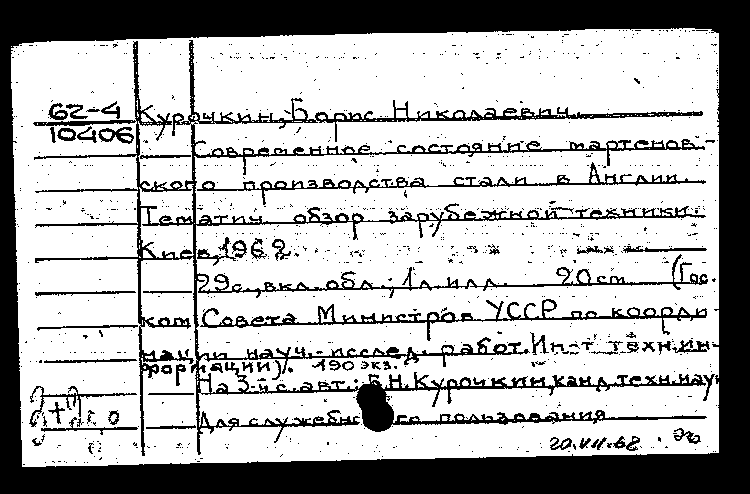 62-4
10406
Курочкин, Борис Николаевич.
Современное состояние мартенов-
ского производства стали в Англии.
Тематич обзор зарубежной техники.
Киев, 1962.
29с., вкл. обл.; 1 л. илл. 20 cm (Гос.
ком Совета Министров УССР по коорди-
нации науч.-исслед. работ. Ин-т техн. ин-
формации). 190 экз.
На 3-й с. авт.: Б.Н. Курочкин, канд. техн. наук
Для служебного пользования
20.VII.62